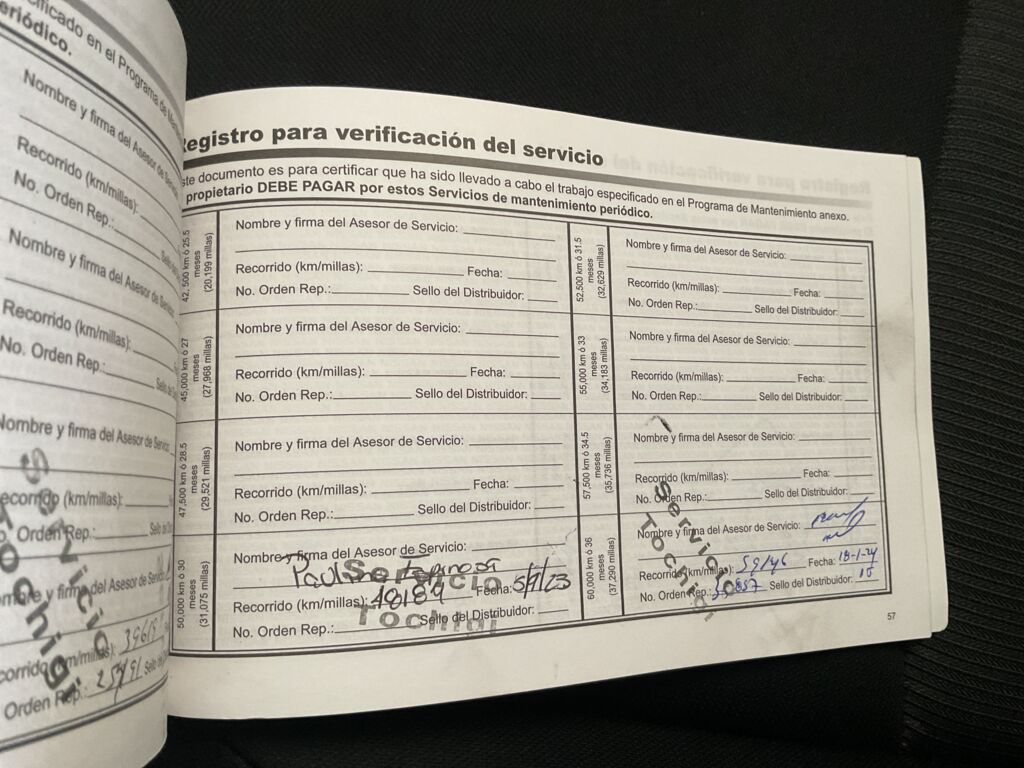 cificado en el Programa de Ma
eriódico.
Nombre y firma del Asesor
Recorrido (km/millas):
No. Orden Rep.:
Nombre y firma del Aseso
Recorrido (km/millas):
No. Orden Rep.:
Nombre y firma del Asesor de
ecorrido (km/millas):
Orden Rep.:
mbre y firma del Asesor de
Servicio
Tochigi
corrido (km/millas):
Orden Rep.:
Registro para verificación del servicio
ste documento es para certificar que ha sido llevado a cabo el trabajo especificado en el Programa de Mantenimiento anexo.
propietario DEBE PAGAR por estos Servicios de mantenimiento periódico.
42, 500 km ó 25.5
meses
(20,199 millas)
Nombre y firma del Asesor de Servicio:
Recorrido (km/millas): Fecha:
No. Orden Rep.: Sello del Distribuidor:
45,000 km ó 27
meses
(27,968 millas)
Nombre y firma del Asesor de Servicio:
Recorrido (km/millas): Fecha:
No. Orden Rep.: Sello del Distribuidor:
47,500 km ó 28.5
meses
(29,521 millas)
Nombre y firma del Asesor de Servicio:
Recorrido (km/millas): Fecha:
No. Orden Rep.: Sello del Distribuidor:
50,000 km ó 30
meses
(31,075 millas)
Nombre y firma del Asesor de Servicio:
Servicio
Recorrido (km/millas): 48189 Fecha:
Tochigi
No. Orden Rep.: Sello del Distribuidor:
52,500 km ó 31.5
meses
(32,629 millas)
Nombre y firma del Asesor de Servicio:
Recorrido (km/millas): Fecha:
No. Orden Rep.: Sello del Distribuidor:
55,000 km ó 33
meses
(34,183 millas)
Nombre y firma del Asesor de Servicio:
Recorrido (km/millas): Fecha:
No. Orden Rep.: Sello del Distribuidor:
57,500 km ó 34.5
meses
(35,736 millas)
Nombre y firma del Asesor de Servicio:
Recorrido (km/millas): Fecha:
No. Orden Rep.: Sello del Distribuidor:
60,000 km ó 36
meses
(37,290 millas)
Servicio
Tochigi
Nombre y firma del Asesor de Servicio:
Recorrido (km/millas): 59146 Fecha: 18-1-24
No. Orden Rep.: Sello del Distribuidor:
57